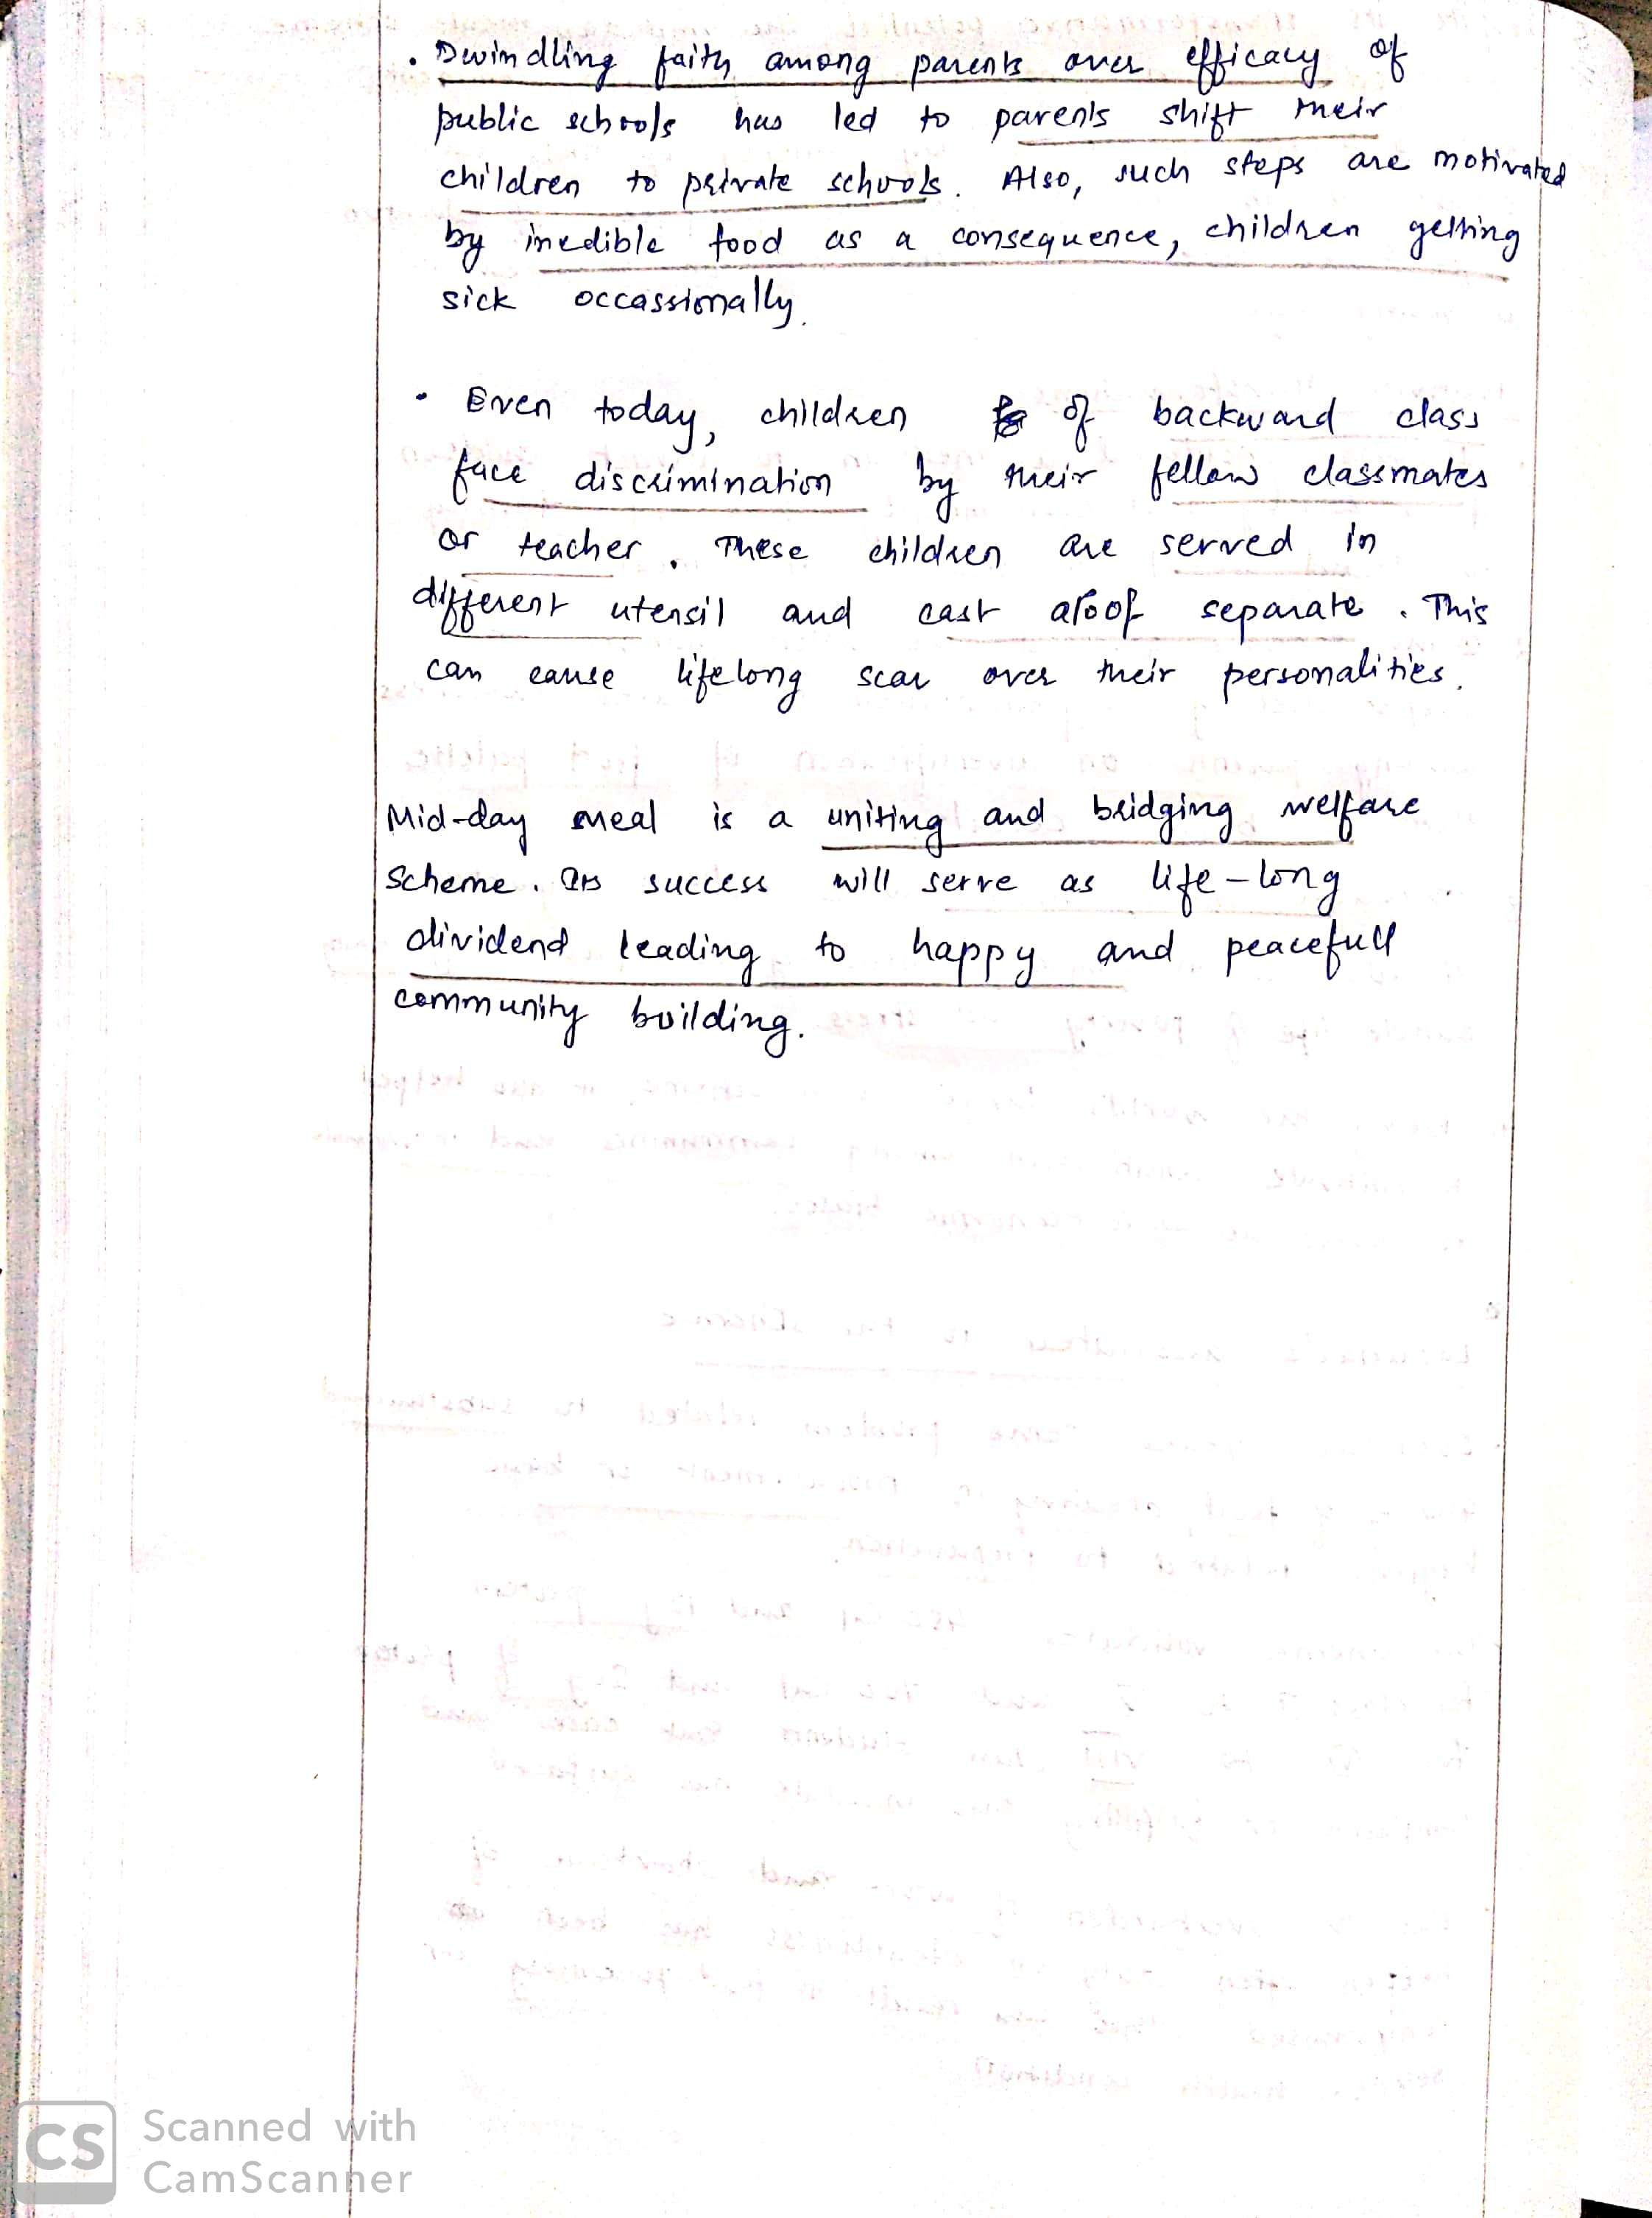 . Dwindling faith among parents over efficacy of
public schools has led to parents shift their
children to private schools. Also, such steps are motivated
by inedible food as a consequence, children getting
sick occassionally.
• Even today, children of backward class
face discrimination by their fellow classmates
or teacher. These children are served in
different utensil and cast aloof separate. This
can cause lifelong scar over their personalities.
Mid-day meal is a uniting and bridging welfare
Scheme. Its success will serve as life-long
dividend leading to happy and peacefull
community building.
CS Scanned with
CamScanner